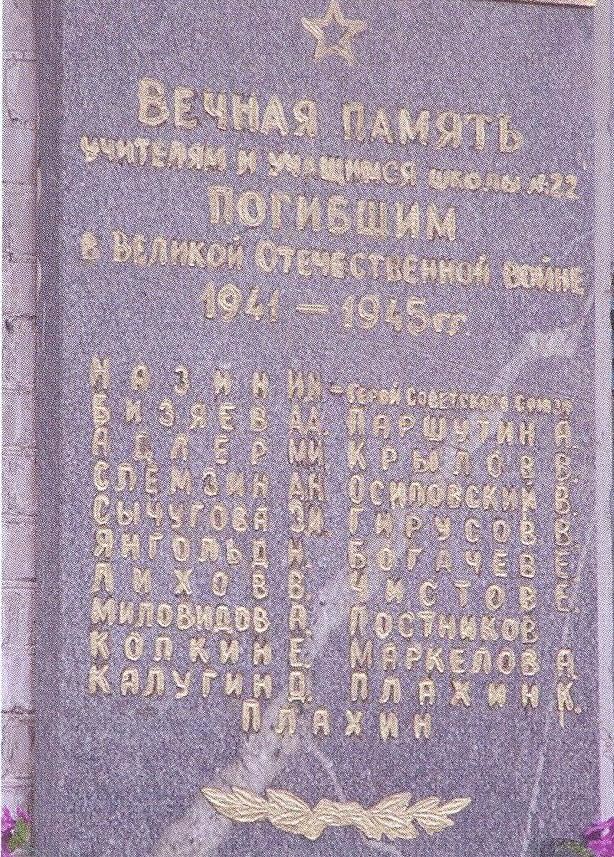 Вечная память
учителям и учащимся школы №22
погибшим
в Великой Отечественной войне
1941 — 1945 гг.
Назин И.Н. – Герой Советского Союза
Бизяев А.Д. Паршутин А.
Адлер М.И. Крылов В.
Слемзин А.Н. Осиповский В.
Сычугова З.И. Гирусов В.
Янгольд Н. Богачев Е.
Лихов В. Чистов Е.
Миловидов А. Постников
Копкин Е. Маркелова А.
Калугин Д. Плахин К.
Плахин